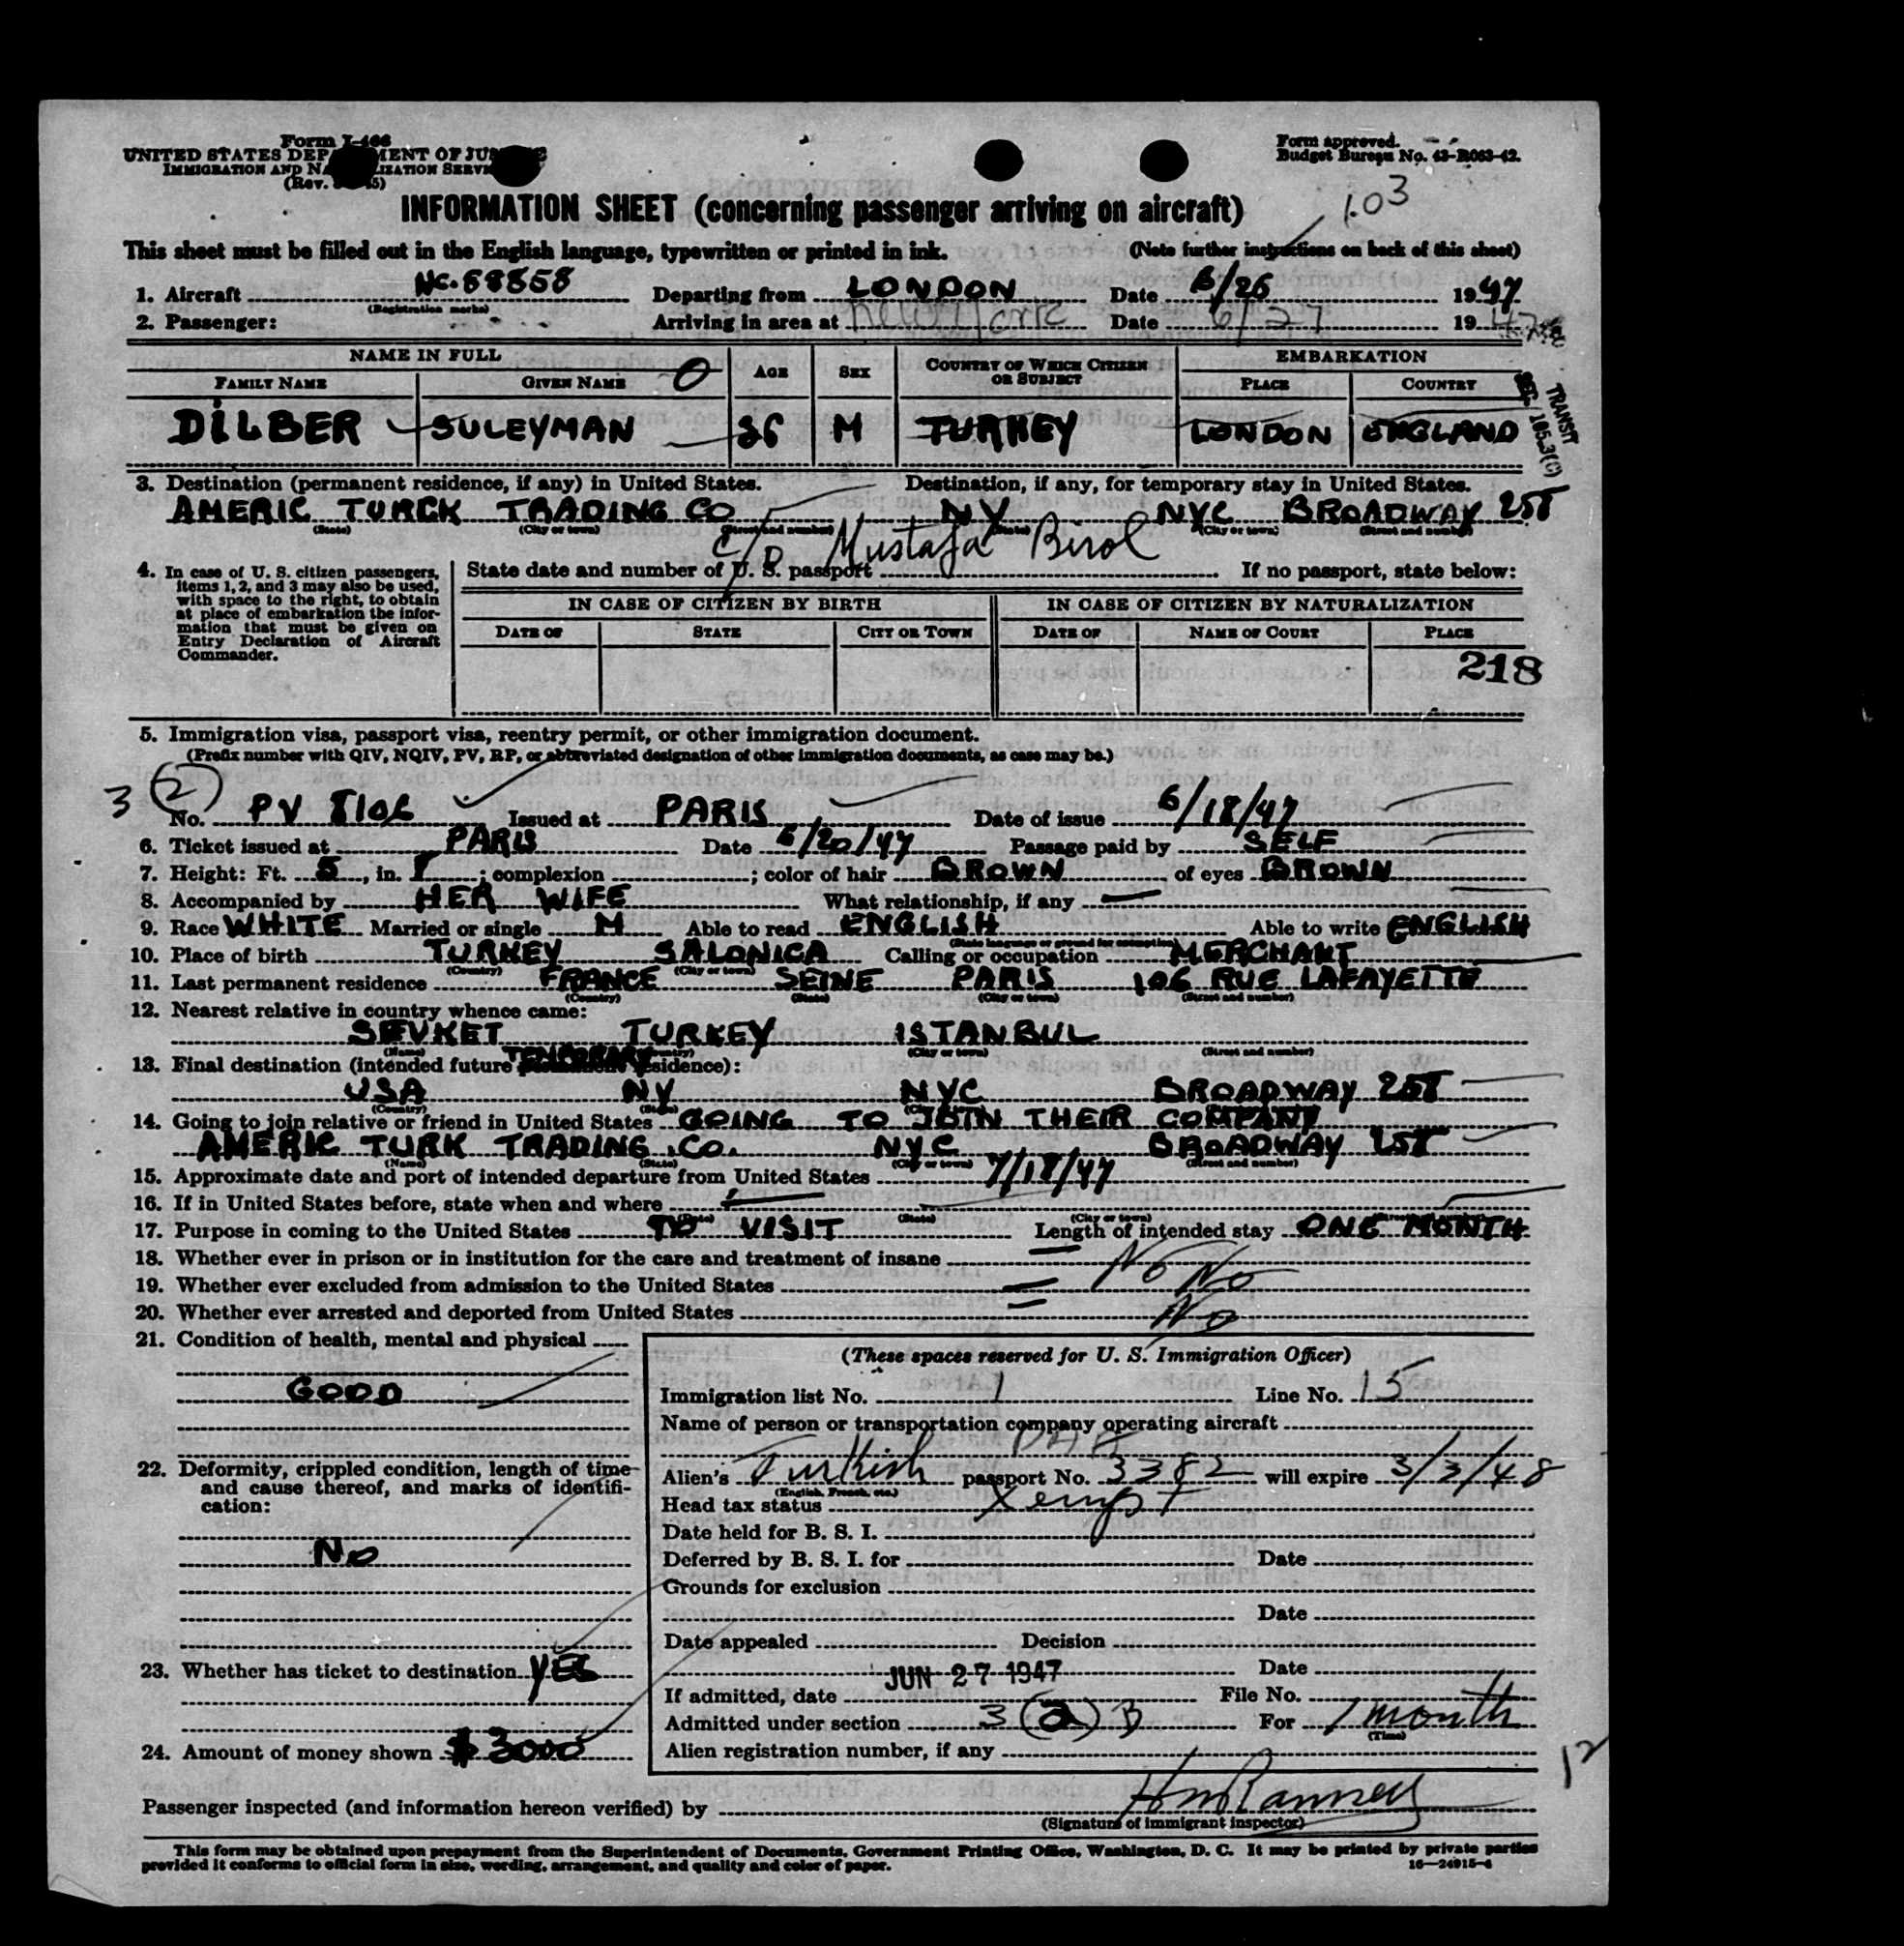 Form I-466
UNITED STATES DEPARTMENT OF JUSTICE
IMMIGRATION AND NATURALIZATION SERVICE
(Rev.
Form approved.
Budget Bureau No. 43-R063-42.
103
INFORMATION SHEET (concerning passenger arriving on aircraft)
This sheet must be filled out in the English language, typewritten or printed in ink. (Note further instructions on back of this sheet)
1. Aircraft NC.88858 Departing from LONDON Date 6/26 1947
(Registration marks)
2. Passenger: Arriving in area at New York Date 6/27 1947
NAME IN FULL AGE SEX COUNTRY OF WHICH CITIZEN OR SUBJECT EMBARKATION
FAMILY NAME GIVEN NAME PLACE COUNTRY
DİLBER SULEYMAN 36 M TURKEY LONDON ENGLAND
TRANSIT
SEC. 105.3(C)
3. Destination (permanent residence, if any) in United States. Destination, if any, for temporary stay in United States.
AMERIC TURCK TRADING CO NY NYC BROADWAY 25T
(State) (City or town) (Street and number) (State) (City or town) (Street and number)
c/o Mustafa Birol
4. In case of U. S. citizen passengers, items 1, 2, and 3 may also be used, with space to the right, to obtain at place of embarkation the information that must be given on Entry Declaration of Aircraft Commander.
State date and number of U. S. passport If no passport, state below:
IN CASE OF CITIZEN BY BIRTH IN CASE OF CITIZEN BY NATURALIZATION
DATE OF STATE CITY OR TOWN DATE OF NAME OF COURT PLACE
218
5. Immigration visa, passport visa, reentry permit, or other immigration document.
(Prefix number with QIV, NQIV, PV, RP, or abbreviated designation of other immigration documents, as case may be.)
3 (2)
No. PV 8106 Issued at PARIS Date of issue 6/18/47
6. Ticket issued at PARIS Date 6/20/47 Passage paid by SELF
7. Height: Ft. 5, in. 8; complexion ; color of hair BROWN of eyes BROWN
8. Accompanied by HER WIFE What relationship, if any —
9. Race WHITE Married or single M Able to read ENGLISH Able to write ENGLISH
(State language or ground for exemption)
10. Place of birth TURKEY SALONICA Calling or occupation MERCHANT
(Country) (City or town)
11. Last permanent residence FRANCE SEINE PARIS 106 RUE LAFAYETTE
(Country) (State) (City or town) (Street and number)
12. Nearest relative in country whence came:
SEVKET TURKEY ISTANBUL
(Name) (Country) (City or town) (Street and number)
13. Final destination (intended future TEMPORARY residence):
USA NY NYC BROADWAY 25T
(Country) (State) (City or town)
14. Going to join relative or friend in United States GOING TO JOIN THEIR COMPANY
AMERIC TURK TRADING CO. NYC BROADWAY 25T
(Name) (State) (City or town) (Street and number)
15. Approximate date and port of intended departure from United States 7/18/47
16. If in United States before, state when and where —
(Date) (State) (City or town) (Street and number)
17. Purpose in coming to the United States TO VISIT Length of intended stay ONE MONTH
18. Whether ever in prison or in institution for the care and treatment of insane No
19. Whether ever excluded from admission to the United States No
20. Whether ever arrested and deported from United States No
21. Condition of health, mental and physical
GOOD
22. Deformity, crippled condition, length of time and cause thereof, and marks of identification:
No
23. Whether has ticket to destination YES
24. Amount of money shown $ 3000
(These spaces reserved for U. S. Immigration Officer)
Immigration list No. 1 Line No. 15
Name of person or transportation company operating aircraft
PAA
Alien's Turkish passport No. 3382 will expire 3/3/48
(English, French, etc.)
Head tax status Xempt
Date held for B. S. I.
Deferred by B. S. I. for Date
Grounds for exclusion
Date
Date appealed Decision
Date
JUN 27 1947
If admitted, date File No.
Admitted under section 3 (2) B For 1 month
(Time)
Alien registration number, if any
12
Passenger inspected (and information hereon verified) by
(Signature of immigrant inspector)
This form may be obtained upon prepayment from the Superintendent of Documents, Government Printing Office, Washington, D. C. It may be printed by private parties
provided it conforms to official form in size, wording, arrangement, and quality and color of paper. 16—24915-4